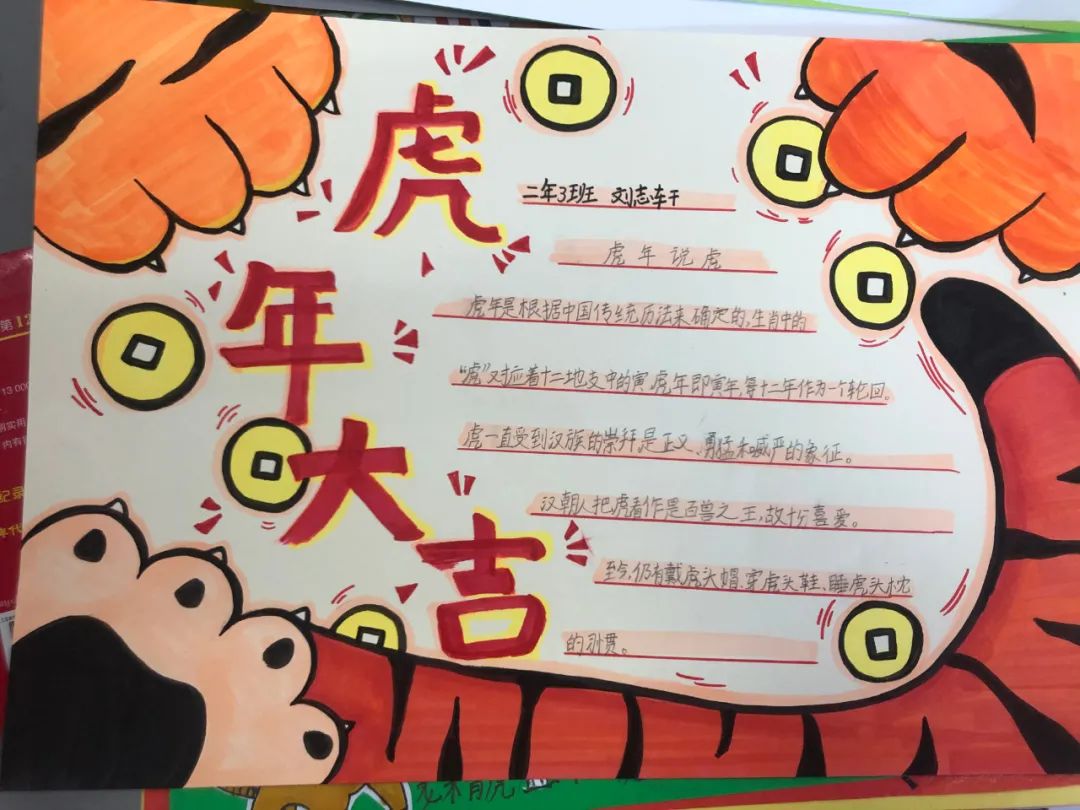 虎年大吉
二年3班 刘志轩
虎年说虎
虎年是根据中国传统历法来确定的,生肖中的
“虎”对应着十二地支中的寅,虎年即寅年,每十二年作为一个轮回。
虎一直受到汉族的崇拜,是正义、勇猛和威严的象征。
汉朝人把虎看作是百兽之王,故十分喜爱。
至今,仍有戴虎头帽、穿虎头鞋、睡虎头枕
的习惯。
第12
13 000
纪录